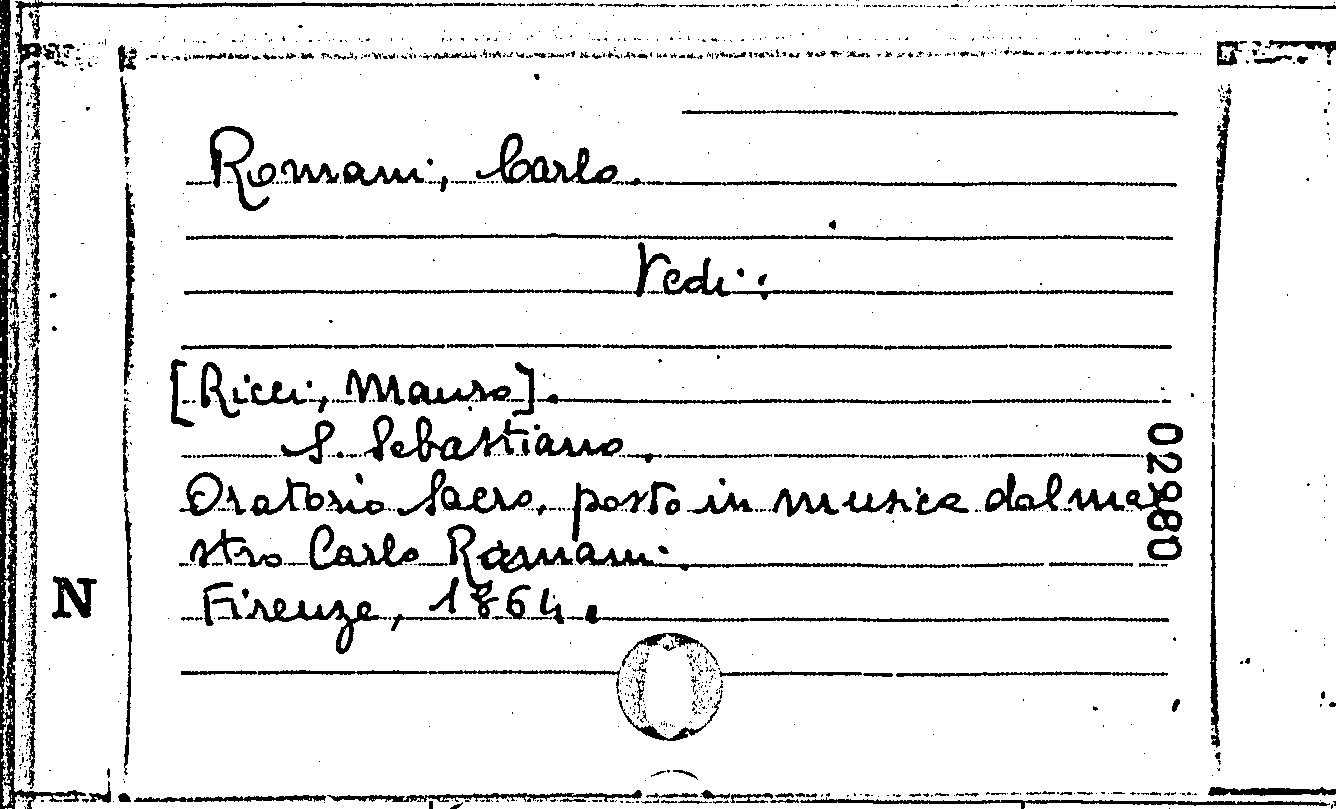 Romani, Carlo.
Vedi:
[Ricci, Mauro].
S. Sebastiano.
Oratorio Sacro, posto in musica dal mae
stro Carlo Romani.
Firenze, 1864.
N
02980